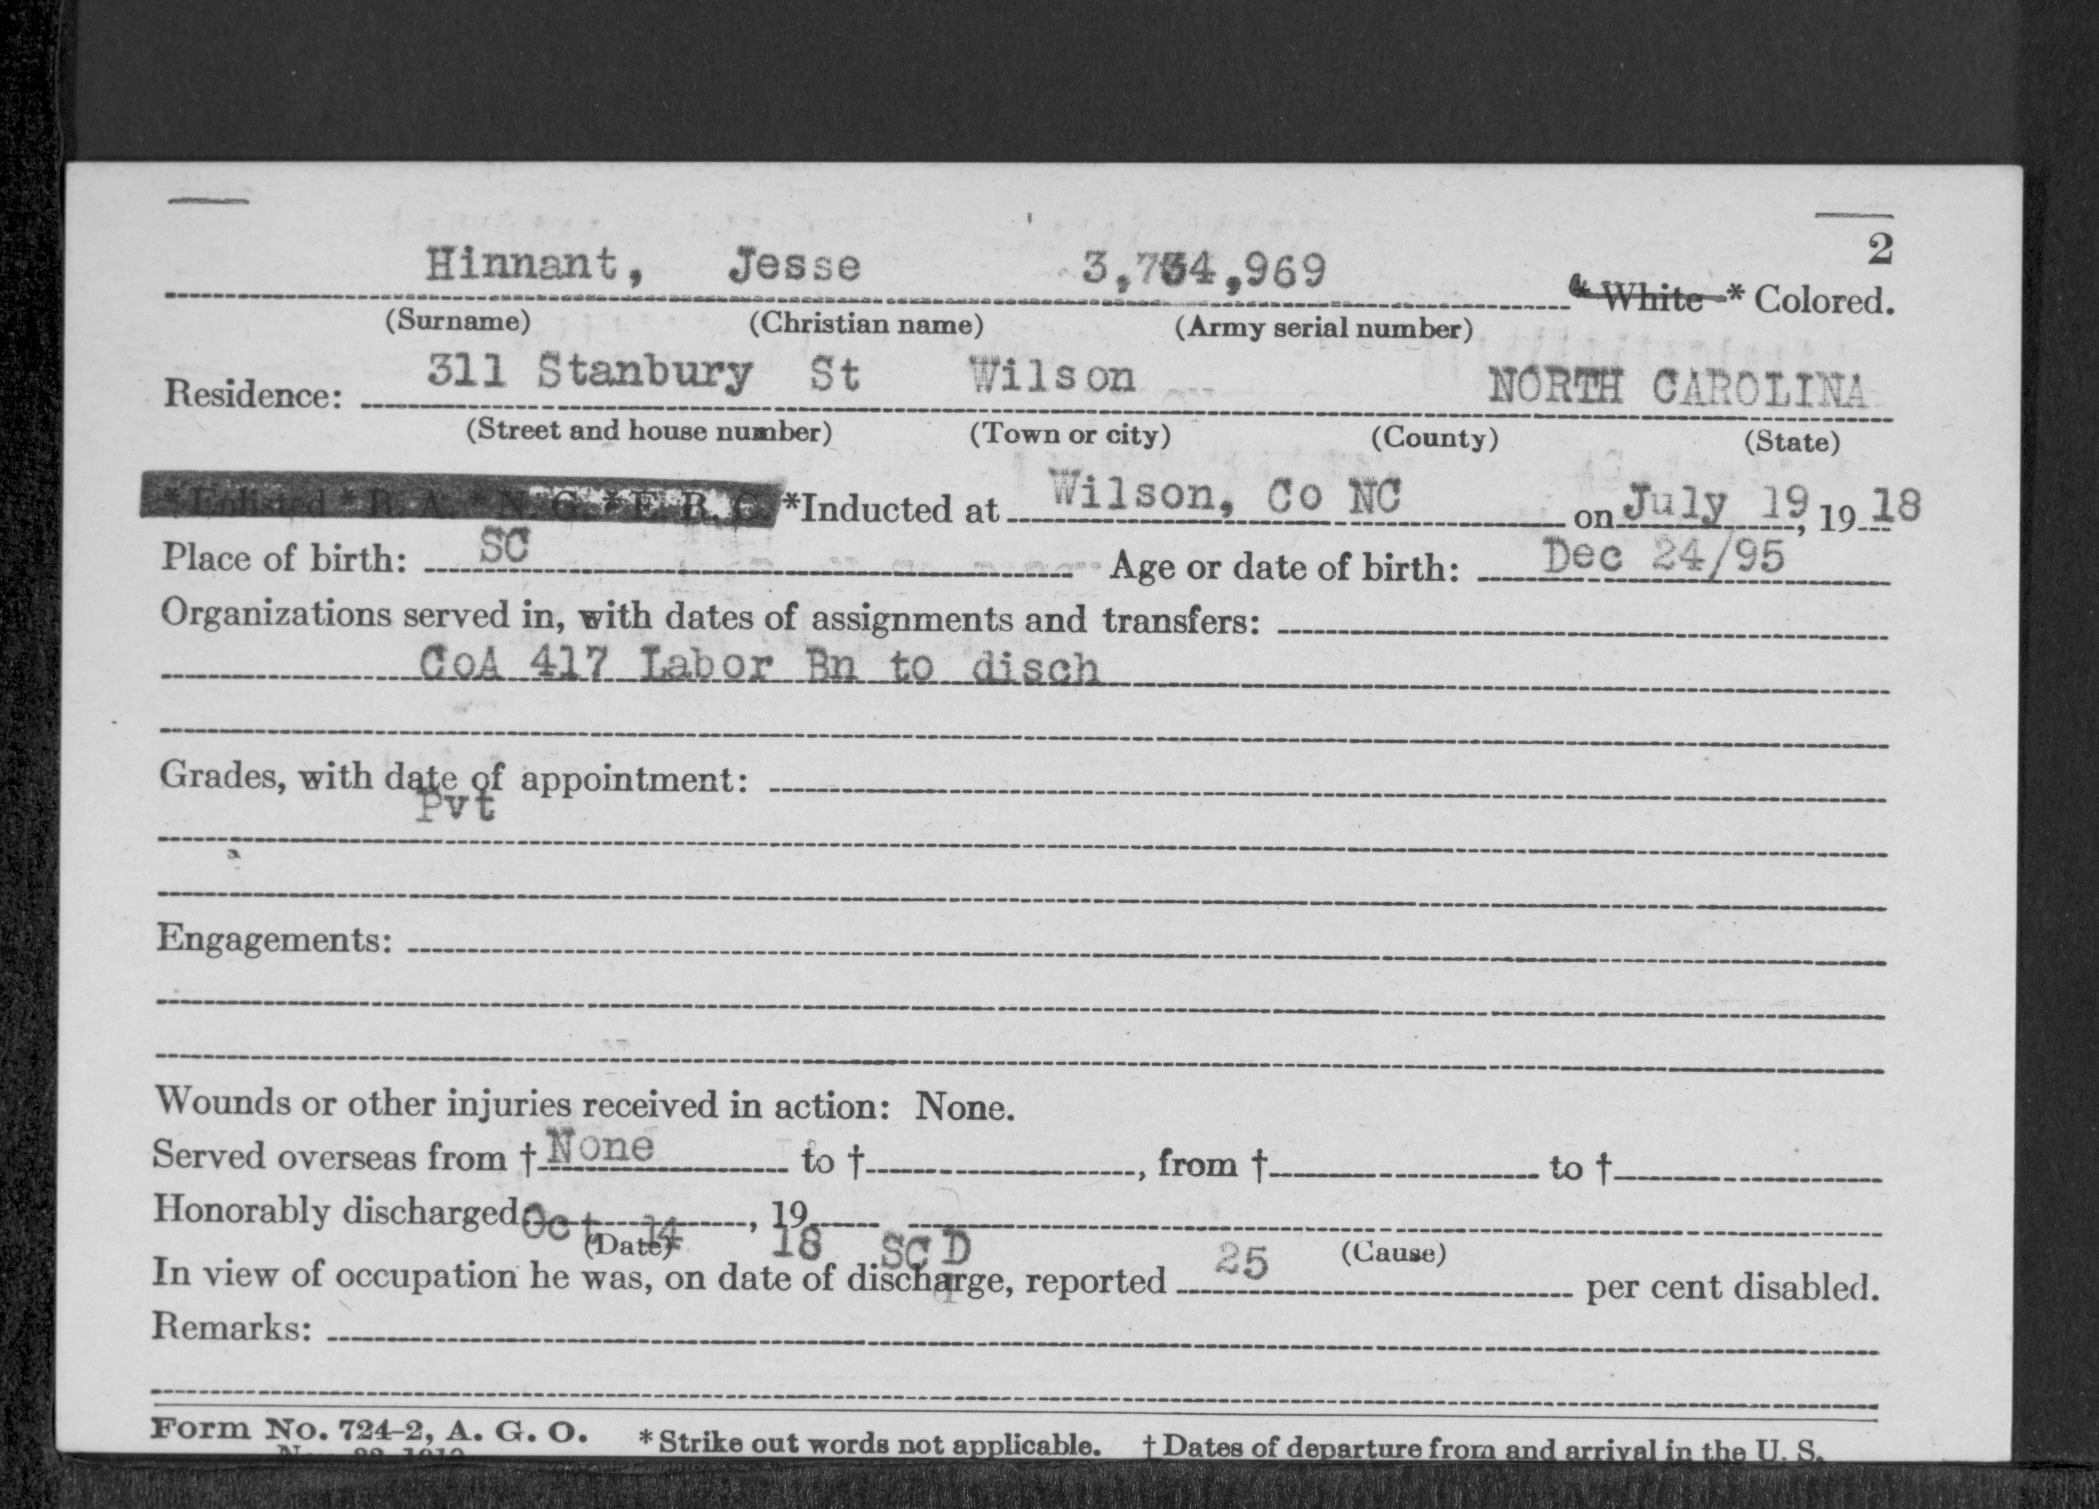 2
Hinnant, Jesse 3,734,969 * White * Colored.
(Surname) (Christian name) (Army serial number)
311 Stanbury St Wilson NORTH CAROLINA
Residence:
(Street and house number) (Town or city) (County) (State)
*Enlisted * R. A. * N. G. * E. R. C. *Inducted at Wilson, Co NC on July 19, 1918
Place of birth: SC Age or date of birth: Dec 24/95
Organizations served in, with dates of assignments and transfers:
CoA 417 Labor Bn to disch
Grades, with date of appointment:
Pvt
Engagements:
Wounds or other injuries received in action: None.
Served overseas from † None to †, from † to †
Honorably discharged Oct 14, 19 18 SCD
(Date) (Cause)
In view of occupation he was, on date of discharge, reported 25 per cent disabled.
Remarks:
Form No. 724-2, A. G. O. * Strike out words not applicable. † Dates of departure from and arrival in the U. S.